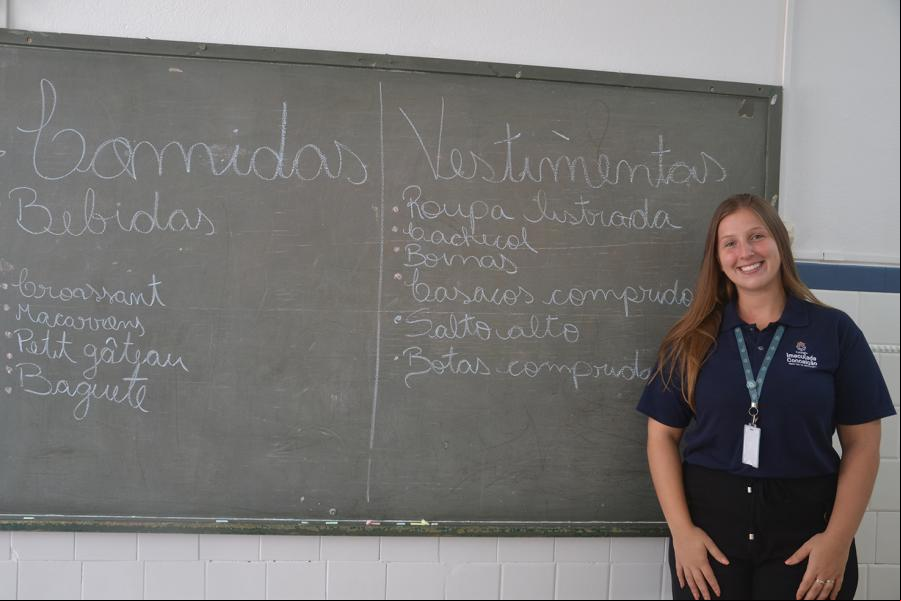 Comidas
Bebidas
Croassant
Macarrons
Petit gâteau
Baguete
Vestimentas
Roupa listrada
Cachecol
Boinas
Casacos comprido
Salto alto
Botas comprid
Imaculada
Conceição